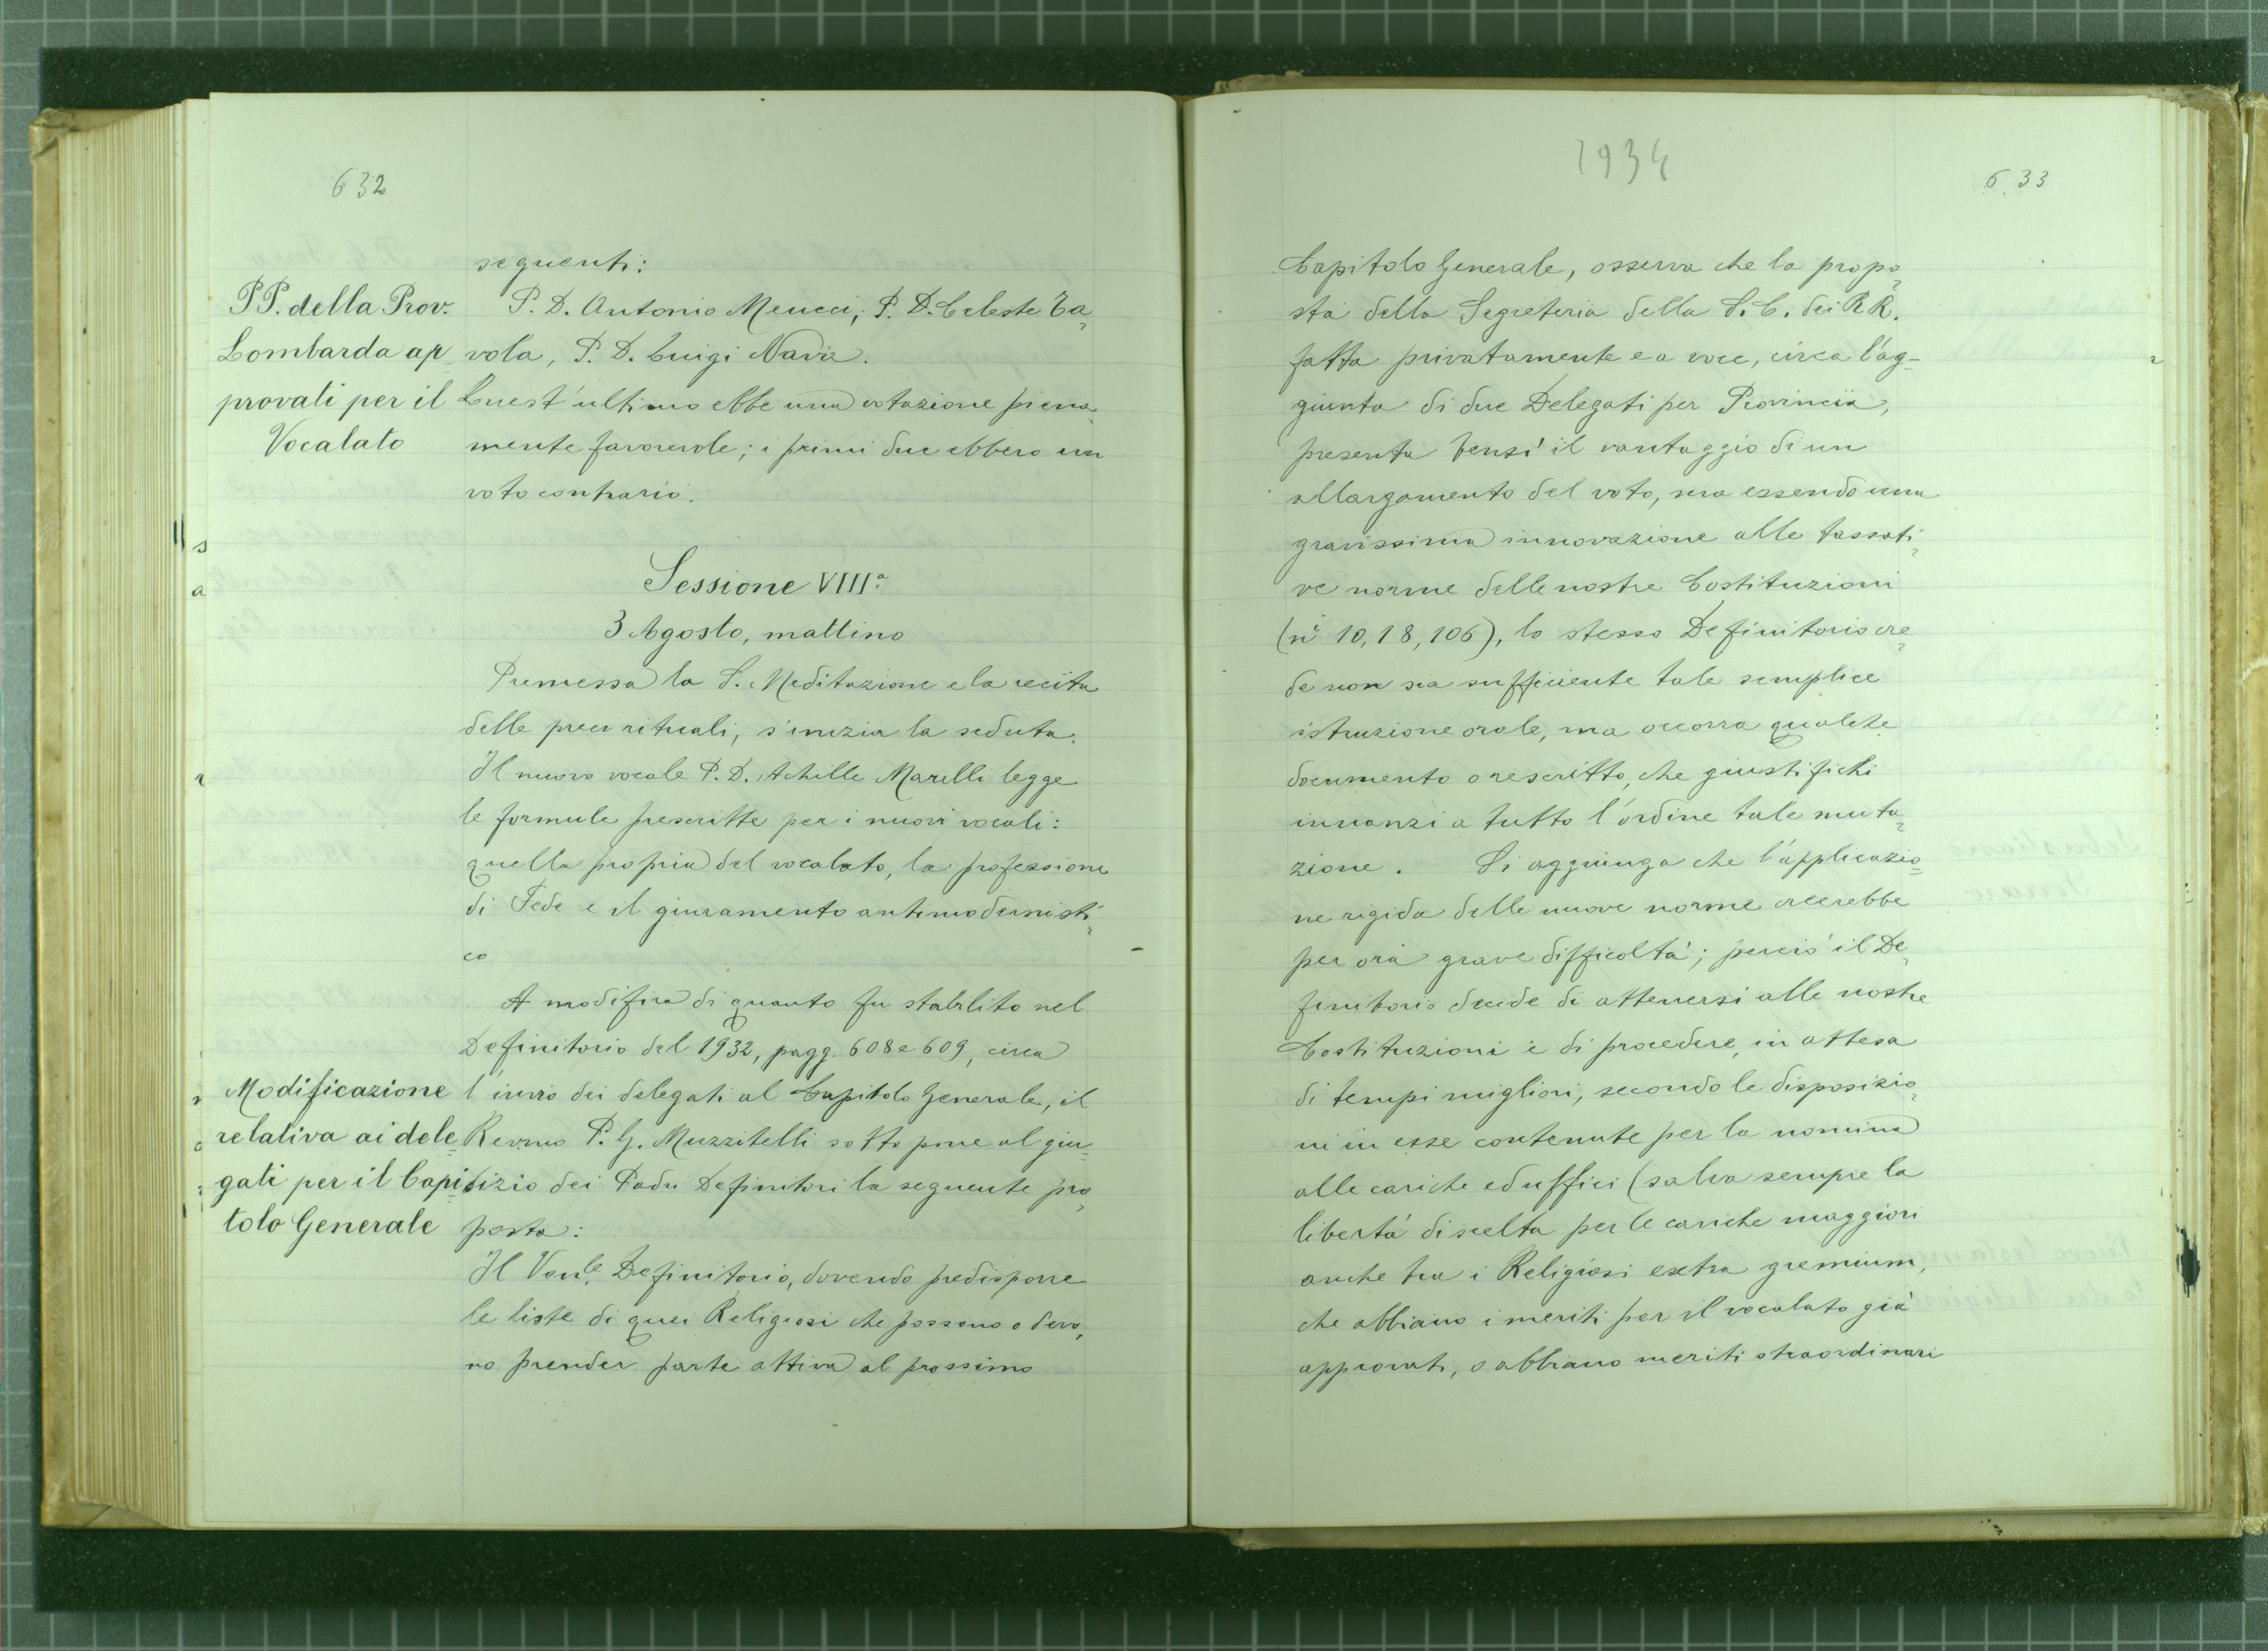 632
seguenti:
PP. della Prov.
Lombarda ap
provati per il
Vocalato
P. D. Antonio Meucci, P. D. Celeste Ta
vola, P. D. Luigi Nava.
Quest'ultimo ebbe una votazione piena
mente favorevole; i primi due ebbero un
voto contrario.
Sessione VIIIª
3 Agosto, mattino
Premessa la S. Meditazione e la recita
delle preci rituali, s'inizia la seduta.
Il nuovo vocale P. D. Achille Marelli legge
le formule prescritte per i nuovi vocali:
quella propria del vocalato, la professione
di Fede e il giuramento antimodernisti
co
A modifica di quanto fu stabilito nel
Definitorio del 1932, pagg. 608 e 609, circa
Modificazione
relativa ai dele
gati per il Capi
tolo Generale
l'invio dei delegati al Capitolo Generale, il
Revmo P. G. Muzzitelli sottopone al giu
dizio dei Padri Definitori la seguente pro
posta:
Il Ven.le Definitorio, dovendo predisporre
le liste di quei Religiosi che possono o devo
no prender parte attiva al prossimo
1934
633
Capitolo Generale, osserva che la propo
sta della Segreteria della S. C. dei RR.
fatta privatamente e a voce, circa l'ag-
giunta di due Delegati per Provincia,
presenta bensì il vantaggio di un
allargamento del voto, ma essendo una
gravissima innovazione alle tassati
ve norme delle nostre Costituzioni
(ni 10, 18, 106), lo stesso Definitorio cre
de non sia sufficiente tale semplice
istruzione orale, ma occorra qualche
documento o rescritto, che giustifichi
innanzi a tutto l'ordine tale muta
zione. Si aggiunga che l'applicazio
ne rigida delle nuove norme creerebbe
per ora grave difficoltà; perciò il De
finitorio decide di attenersi alle nostre
Costituzioni e di procedere, in attesa
di tempi migliori, secondo le disposizio
ni in esse contenute per la nomina
alle cariche ed uffici (salva sempre la
libertà di scelta per le cariche maggiori
anche tra i Religiosi extra gremium,
che abbiano i meriti per il vocalato già
approvati, o abbiano meriti straordinari